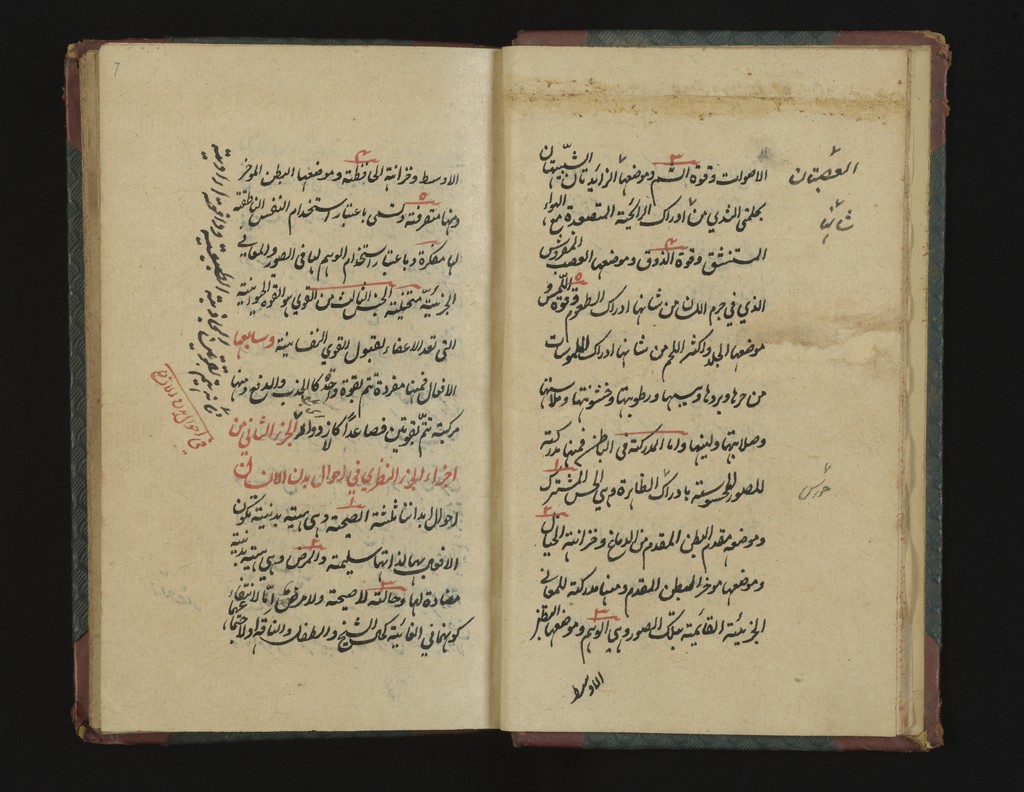 الاصوات وقوة الشم وموضعها الزائدتان الشبيهتان
بحلمتي الثدي من شانها ادراك الرائحة المتصعدة مع الهواء
المستنشق وقوة الذوق وموضعها العصب المفروش
الذي في جرم اللسان من شانها ادراك الطعوم وقوة اللمس و
موضعها الجلد واكثر اللحم من شانها ادراك الملموسات
من حرها وبردها ويبسها ورطوبتها وخشونتها وملاستها
وصلابتها ولينها واما المدركة في الباطن فمنها مدركة
للصور المحسوسة بادراك الظاهرة وهي الحس المشترك
وموضعه مقدم البطن المقدم من الدماغ وخزانته الخيال
وموضعها موخر البطن المقدم ومنها مدركة للمعاني
الجزئية القائمة بتلك الصور وهي الوهم وموضعها البطن
الاوسط
العصبتان
شانها
7
الاوسط وخزانته الحافظة وموضعها البطن الموخر
ومنها متصرفة وتسمى باعتبار استخدام النفس الناطقة
لها مفكرة وباعتبار استخدام الوهم لها في الصور والمعاني
الجزئية متخيلة الجنس الثالث من القوي هو القوة الحيوانية
التي تعد الاعضاء لقبول القوي النفسانية وسابعها
الافعال فمنها مفردة تتم بقوة واحدة كالجذب والدفع ومنها
مركبة تتم بقوتين فصاعدا كالازدراد الجزء الثاني من
اجزاء الجزء النظري في احوال بدن الانسان
احوال بداننا ثلثة الصحة وهي هيئة بدنية تكون
الافعال بها لذاتها سليمة والمرض وهي هيئة بدنية
مضادة لها وحالة لا صحة ولا مرض اما لانتفاء
كونهما في الغاية كحال الشيخ والطفل والناقه او لاجتماعهما